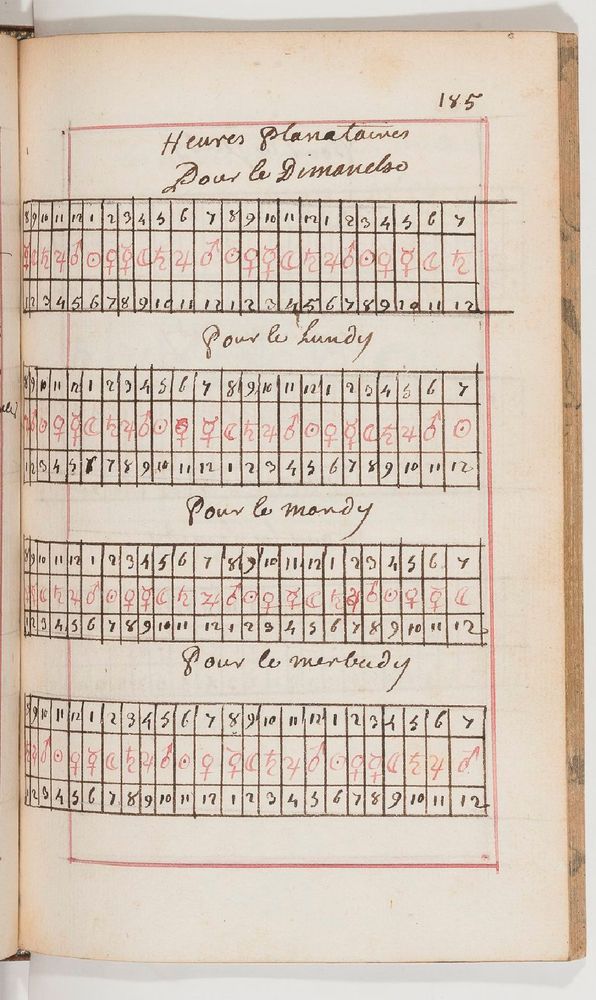 185
Heures Planataires
Pour le Dimanche
8 9 10 11 12 1 2 3 4 5 6 7 8 9 10 11 12 1 2 3 4 5 6 7
1 2 3 4 5 6 7 8 9 10 11 12 1 2 3 4 5 6 7 8 9 10 11 12
Pour le Lundy
8 9 10 11 12 1 2 3 4 5 6 7 8 9 10 11 12 1 2 3 4 5 6 7
1 2 3 4 5 6 7 8 9 10 11 12 1 2 3 4 5 6 7 8 9 10 11 12
Pour le mardy
8 9 10 11 12 1 2 3 4 5 6 7 8 9 10 11 12 1 2 3 4 5 6 7
1 2 3 4 5 6 7 8 9 10 11 12 1 2 3 4 5 6 7 8 9 10 11 12
Pour le
8 9 10 11 12 1 2 3 4 5 6 7 8 9 10 11 12 1 2 3 4 5 6 7
1 2 3 4 5 6 7 8 9 10 11 12 1 2 3 4 5 6 7 8 9 10 11 12